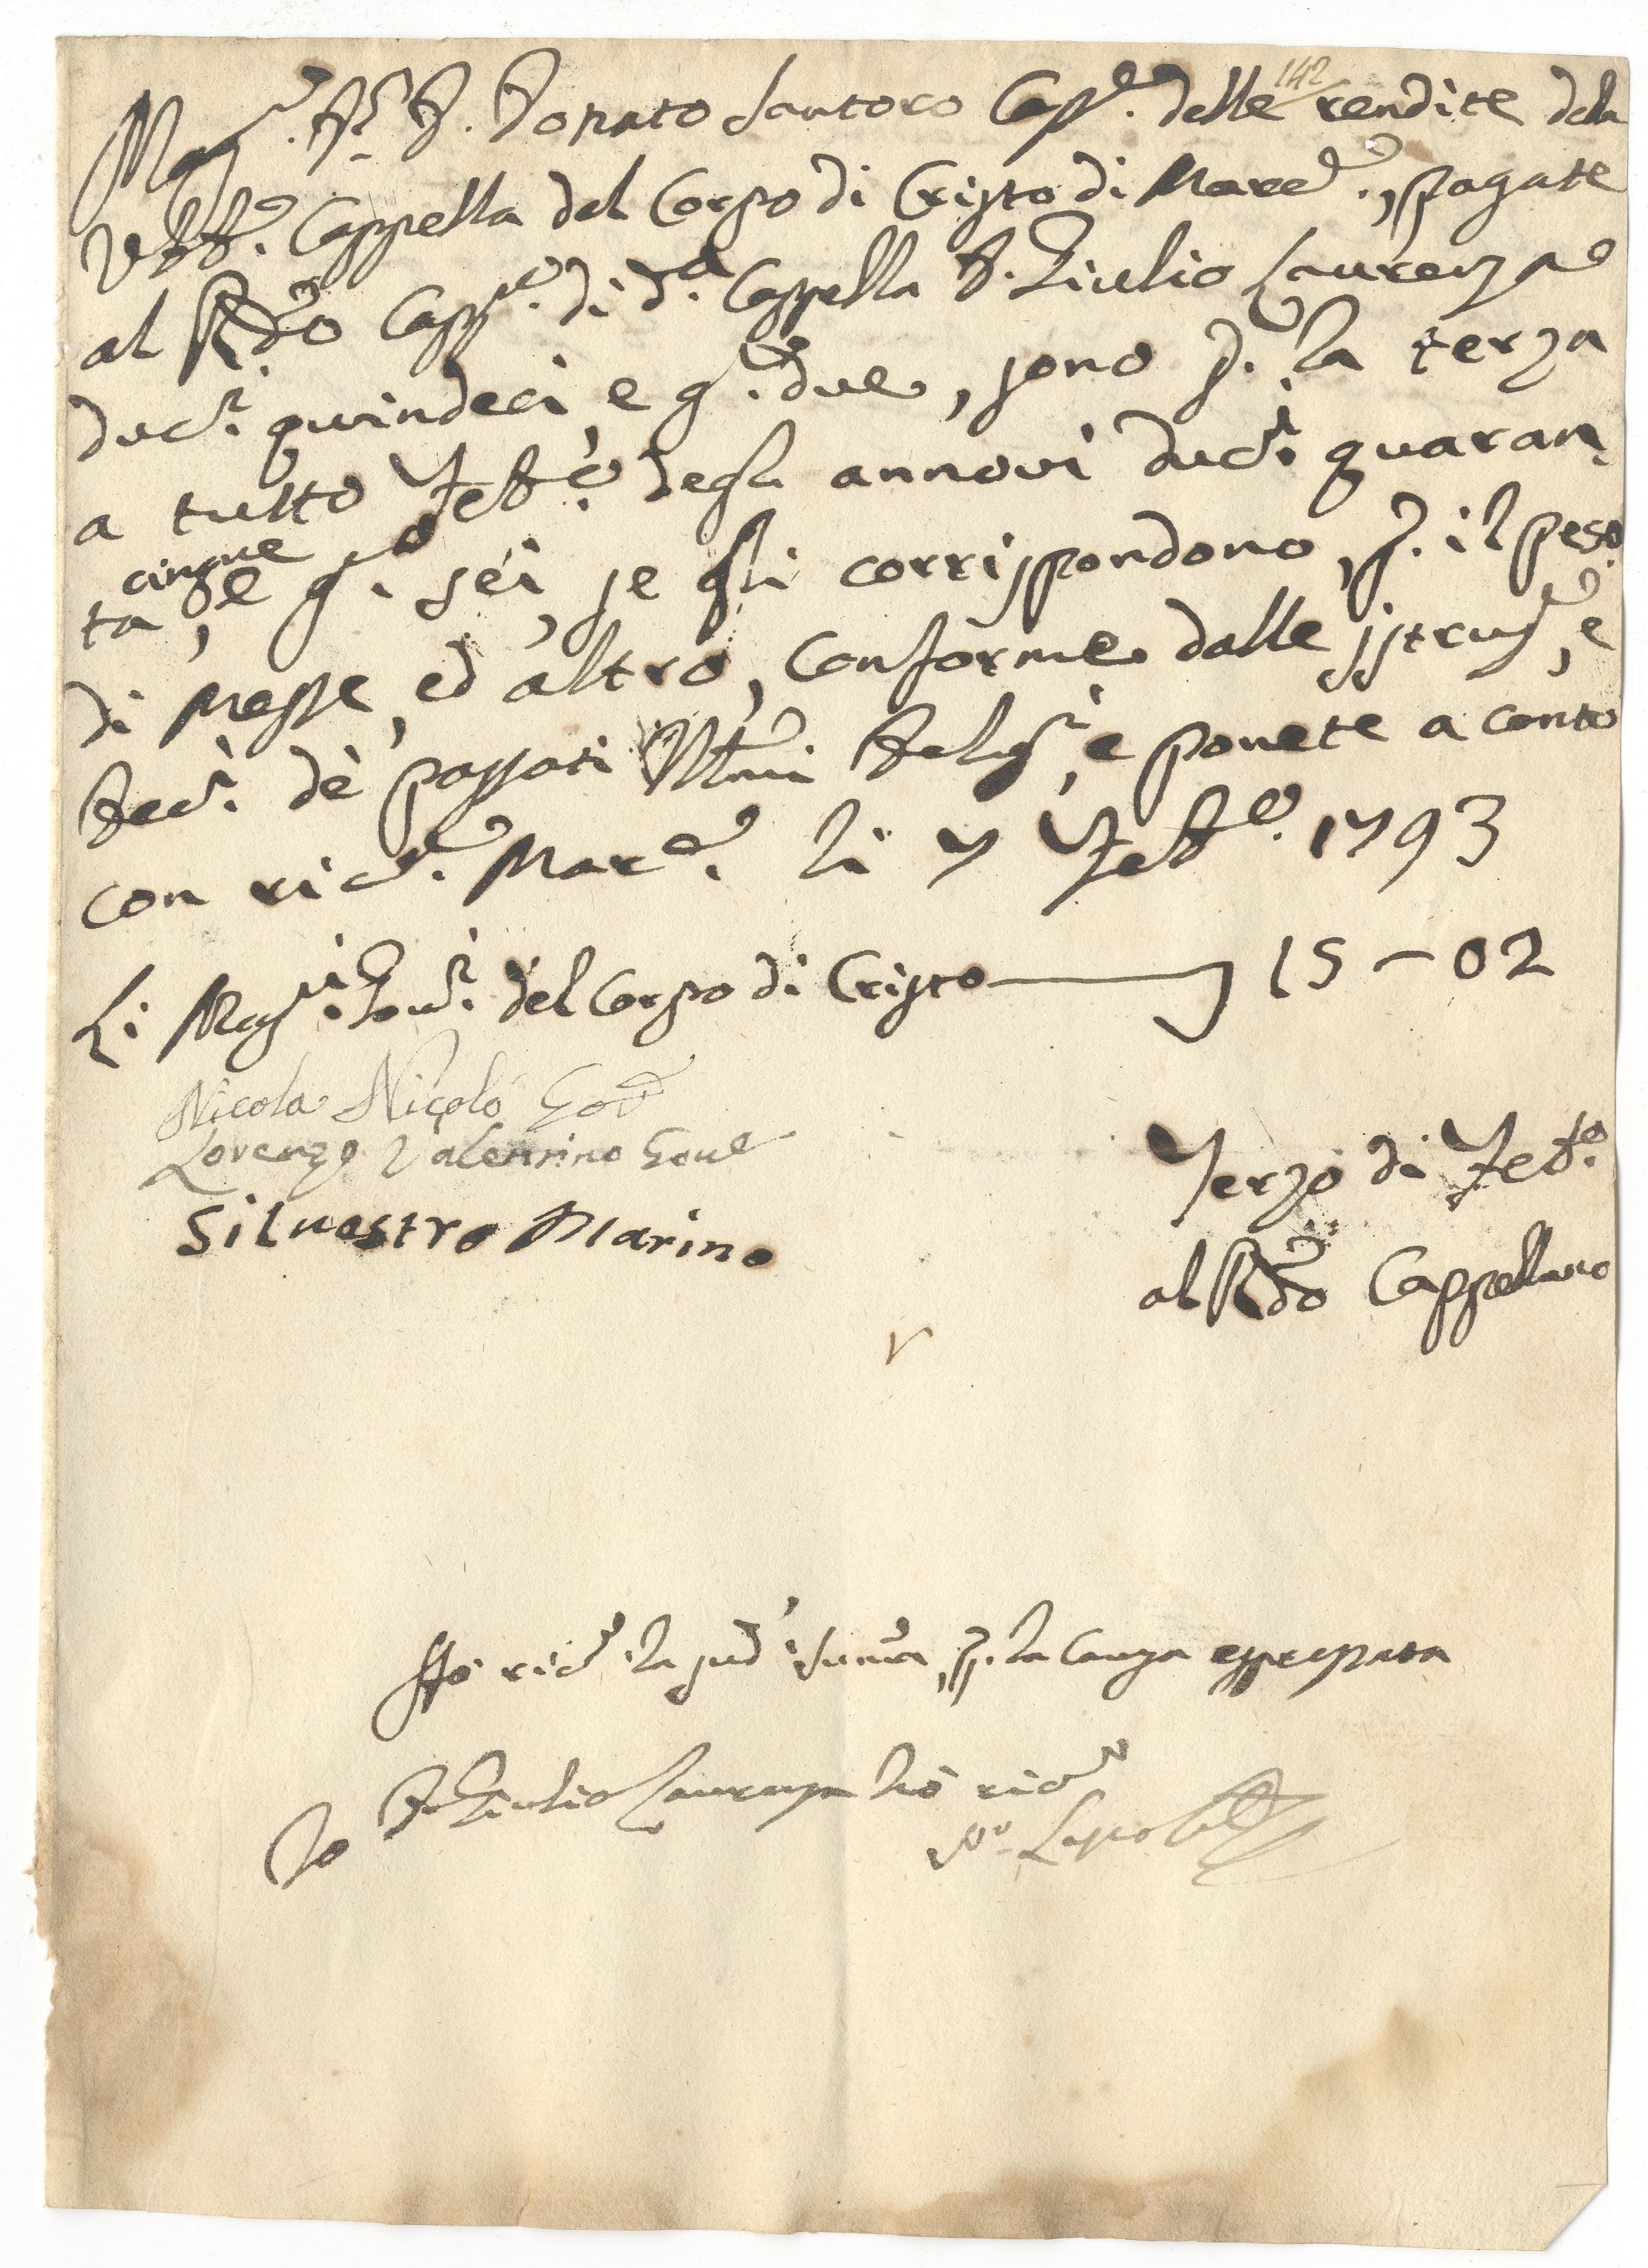 142
Mag.co Sr. D. Donato Santoro Cass.e delle rendite della
Ven.e Cappella del Corpo di Cristo di Marc.e, pagate
al R.do Capp.no di d.a Cappella D. Giulio Laurenza
duc.ti quindeci, e g.a due, sono p. la terza
a tutto Feb.o degli annovi duc.ti quaran
ta cinque, e g.a sei, se gli corrispondono, p. il peso
di Messe, ed altro, conforme dalle istruz.e, e
de' passati e ponete a conto
con ric.e Marc.e li 7 Feb.o 1793
Li Mag.ci Gov.ri del Corpo di Cristo 15-02
Nicola Nicolò Gov.e
Lorenzo Valentino Gove
Silvestro Marino
Terzo di Feb.o
al R.do Cappellano
Hò ric.o la sud.a summa, p. la causa espressata
Io D. Giulio Laurenza hò ric.o